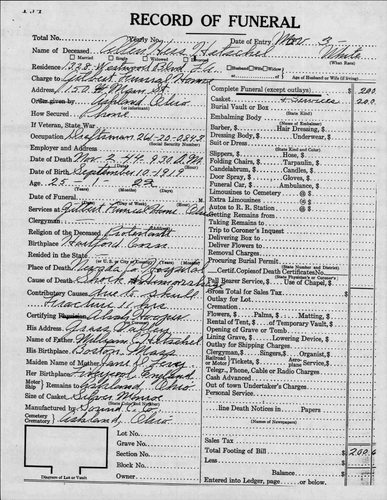 RECORD OF FUNERAL
Total No. Yearly No. Date of Entry Nov. 3,
Name of Deceased Allen Hess Hatschel White
Married Single Widowed Divorced (What Race)
Residence 328 Westwood Blvd. L.A. Husband Wife Widow
Charge to Gilbert Funeral Home Age of Husband or Wife (if living)
Address 150 W Main St.
Order given by Ashland, Ohio
How Secured Phone
If Veteran, State War
Occupation Draftsman 26-20-0843
(Social Security Number)
Employer and Address
Date of Death Nov. 2, 44 9:30 A.M.
Date of Birth September 10, 1919
Age 25 1 23
(Years) (Months) (Days)
Date of Funeral
Services at Gilbert Funeral Home Ohio
Clergyman
Religion of the Deceased Protestant
Birthplace Hartford Conn
Resided in the State
(or U. S. City or County)
Place of Death Nevada Co Hospital
Cause of Death Shock
Contributory Causes due to Skull
Fracture
Certifying Physician Hooper
His Address Grass Valley
Name of Father William C. Hatschel
His Birthplace Boston Mass
Maiden Name of Mother
Her Birthplace England
Motor Ship Remains to Ashland Ohio
Size of Casket Silver
Manufactured by
Cemetery Crematory Ashland, Ohio
Lot No.
Grave No.
Section No.
Block No.
Owner
Diagram of Lot or Vault
Complete Funeral (except outlays) $ 200
Casket + Services 200
Burial Vault or Box
(State Kind)
Embalming Body
(Name of Embalmer)
Barber, $ Hair Dressing, $
Dressing Body, $ Underwear, $
Suit or Dress
(State Kind and Color)
Slippers, $ Hose, $
Folding Chairs, $ Tarpaulin, $
Candelabrum, $ Candles, $
Door Spray, $ Gloves, $
Funeral Car, $ Ambulance, $
Limousines to Cemetery @ $
Extra Limousines @ $
Autos to R. R. Station @ $
Getting Remains from
Taking Remains to
Trip to Coroner's Inquest
Delivering Box to
Deliver Flowers to
Removal Charges
Procuring Burial Permit
(State Number and District)
Certif. Copies of Death Certificates No.
(State Physician's or Coroner's)
Pall Bearer Service, $ Use of Chapel, $
Gross Total for Sales Tax
Outlay for Lot
Cremation
Flowers, $ Palms, $ Matting, $
Rental of Tent, $ of Temporary Vault, $
Opening of Grave or Tomb
Lining Grave, $ Lowering Device, $
Outlay for Shipping Charges
Clergyman, $ Singers, $ Organist, $
Railroad Tickets, $ Aero-plane Service, $
Telegr., Phone, Cable or Radio Charges
Cash Advanced
Out of town Undertaker's Charges
Personal Service
line Death Notices in Papers
(Names of Newspapers)
Sales Tax
Total Footing of Bill $ 200
Less
Balance
Entered into Ledger, page or below.